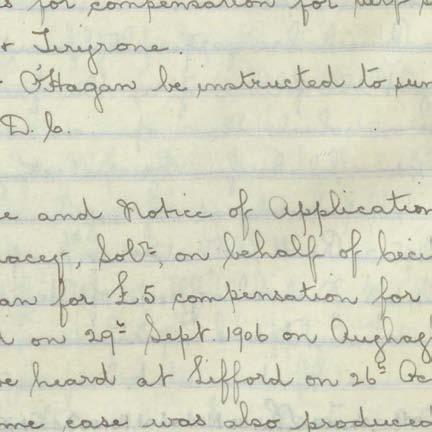 s for compensation for turf
& Tirigrone.
O'Hagan be instructed to
D. C.
e and Notice of Application
acey, Solr, on behalf of Ceci
an for £5 compensation for
on 29th Sept. 1906 on Augha
e heard at Lifford on 26th Oc
me case was also produced